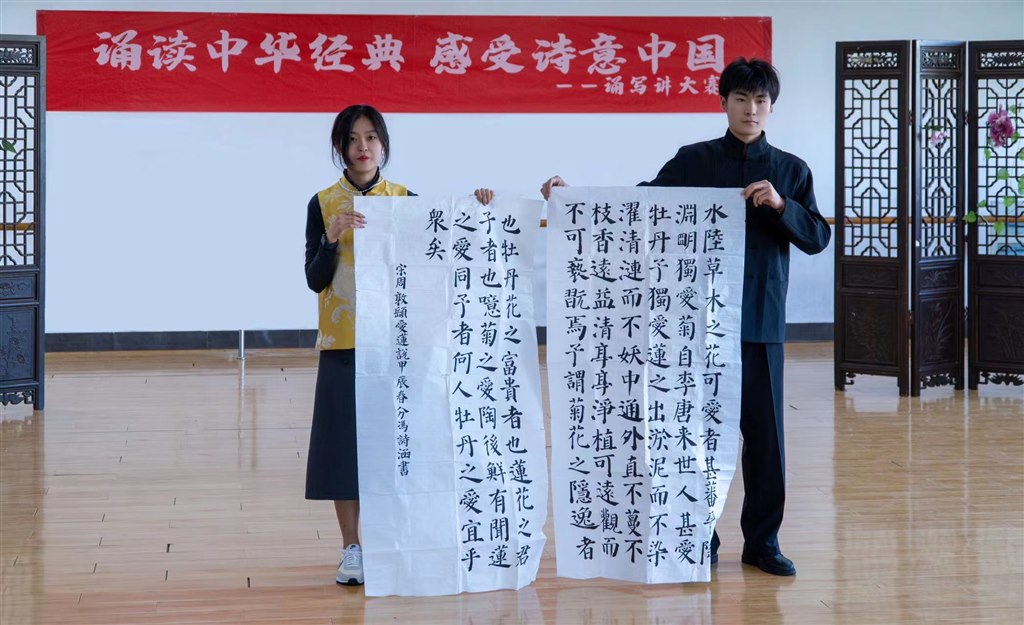 诵读中华经典 感受诗意中国
——诵写讲大赛
水陸草木之花可愛者甚蕃
淵明獨愛菊自李唐来世人甚愛
牡丹予獨愛蓮之出淤泥而不染
濯清漣而不妖中通外直不蔓不
枝香遠益清亭亭淨植可遠觀而
不可褻翫焉予謂菊花之隱逸者
也牡丹花之富貴者也蓮花之君
子者也噫菊之愛陶後鮮有聞蓮
之愛同予者何人牡丹之愛宜乎
衆矣
宋周敦頤愛蓮說甲辰春分馮詩涵書